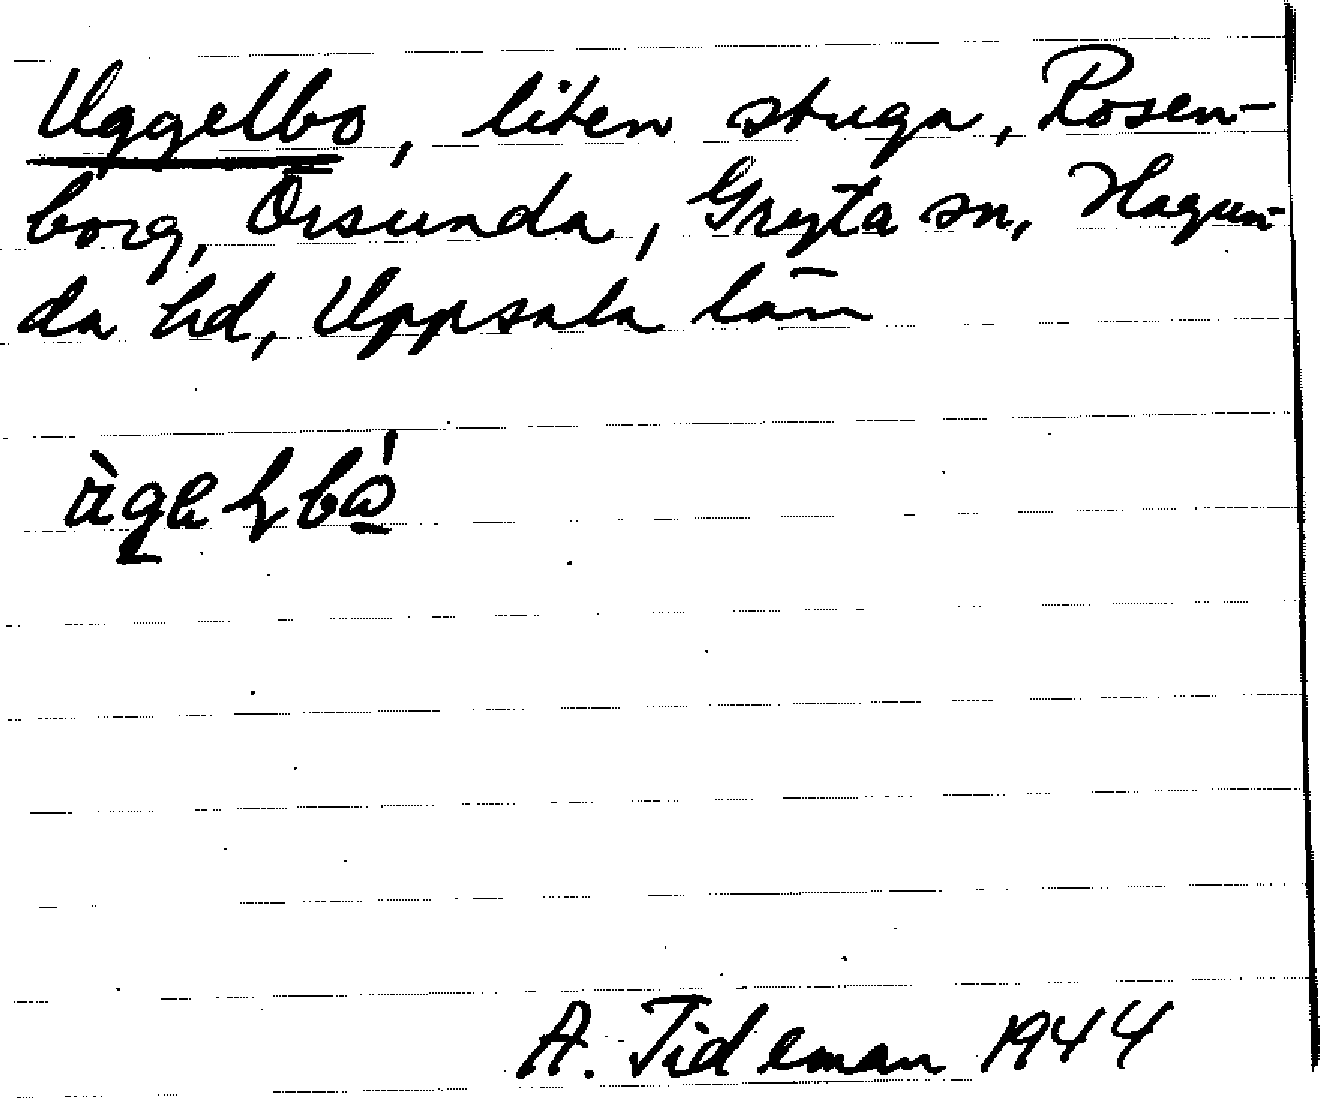 Uggelbo, liten stuga, Rosen-
borg, Örsunda, Gryta sn, Hagun-
da hd, Uppsala län
A. Tideman 1944